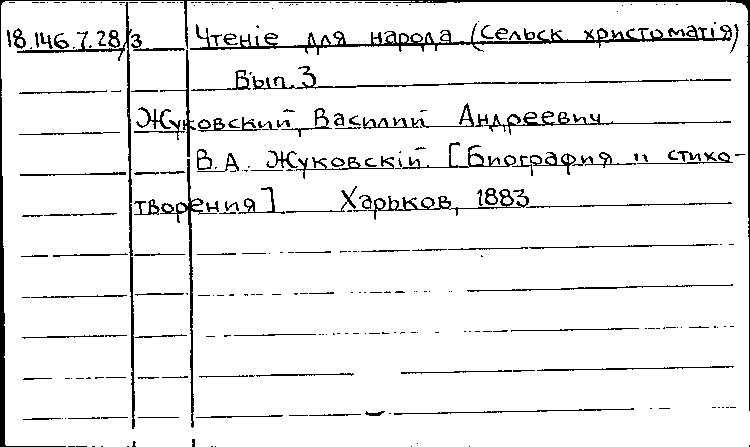 18.146.7.28/3 Чтеніе для народа (Сельск христоматія)
Вып. 3
Жуковский, Василий Андреевич
В.А. Жуковскій. [Биография и стихо-
творения] Харьков, 1883